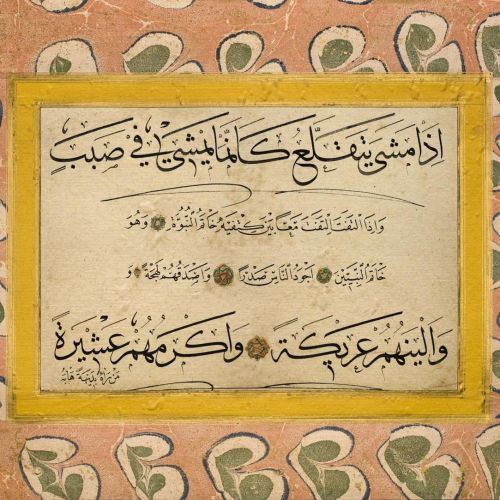 اذا مشى يتقلع كانما يمشي في صبب
واذا التفت التفت معا بين كتفيه خاتم النبوة وهو
خاتم النبيين اجود الناس صدرا واصدقهم لهجة و
والينهم عريكة واكرمهم عشيرة
من راه بديهة هابه